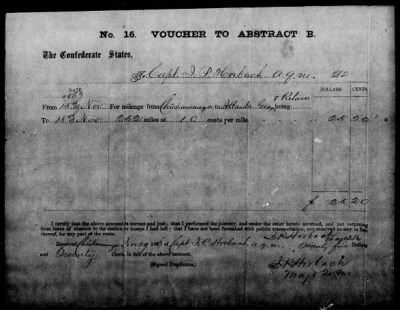 No. 16. VOUCHER TO ABSTRACT B.
The Confederate States,
To Capt. J. P. Horbach a.q.m. Dr
DOLLARS CENTS
1863
& Return
From 15 Nov For mileage from Chickamauga to Atlanta Geo, being
To 18 Nov 252 miles at 10 cents per mile. 25 20
$ 25.20
I certify that the above account is correct and just; that I performed the journey, and under the order hereto annexed, and not returning
from leave of absence to the station or troops I had left; that I have not been furnished with public transportation, nor received money in lieu
thereof, for any part of the route.
J P Horbach
Received Chickamauga of Capt J. P. Horbach a.q.m. Twenty five Dollars
and Twenty Cents, in full of the above account.
(Signed Duplicates.)
J. P. Horbach